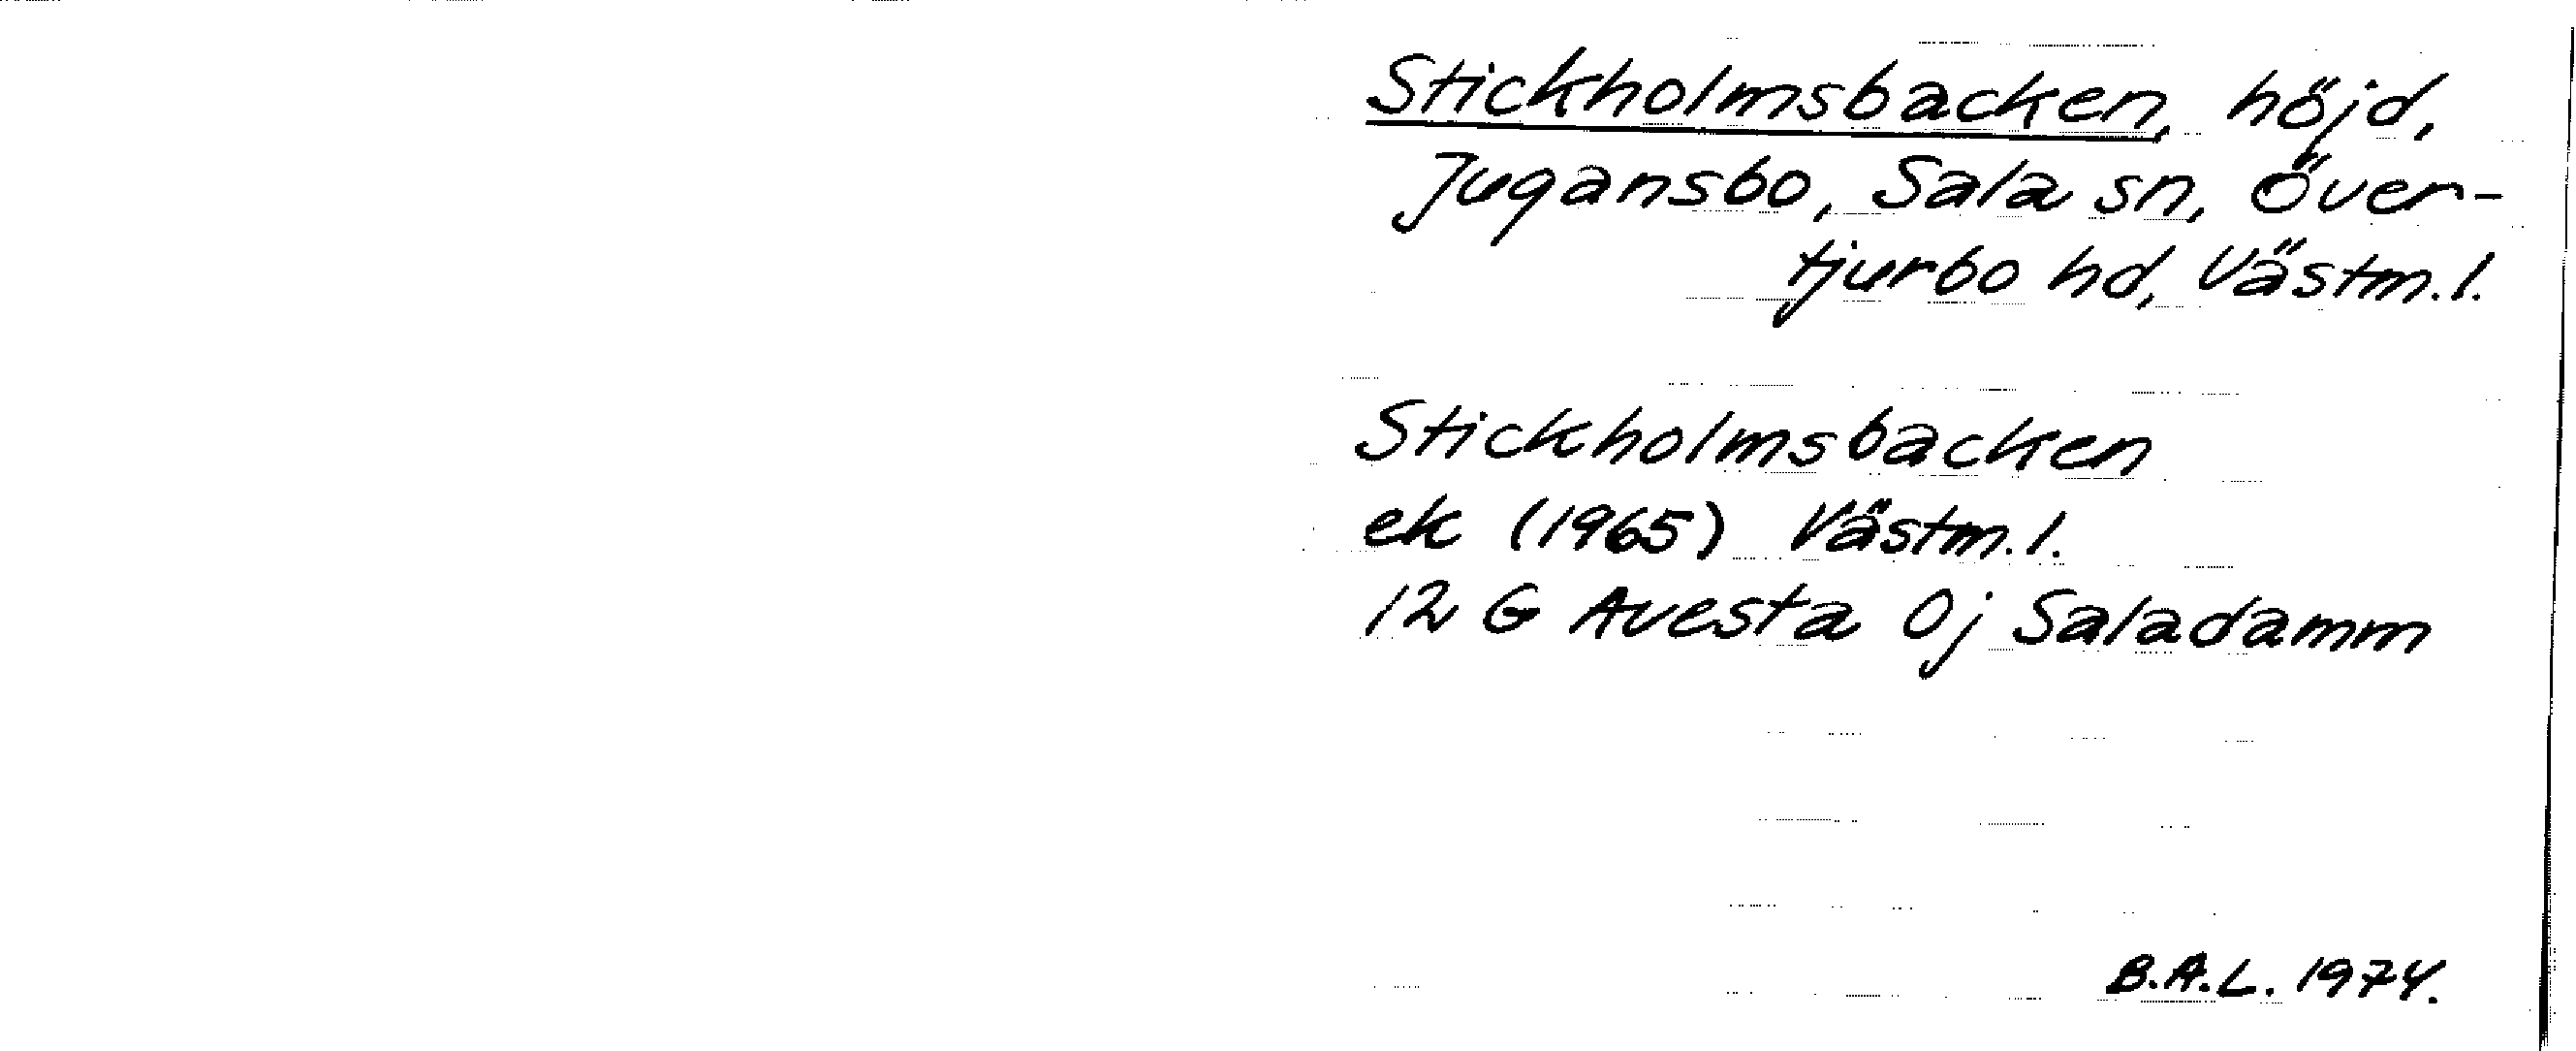 Stickholmsbacken, höjd,
Jugansbo, Sala sn, Över-
tjurbo hd, Västm.l.
Stickholmsbacken
ek (1965) Västm.l.
12 G Avesta 0j Saladamm
B.A.L. 1974.